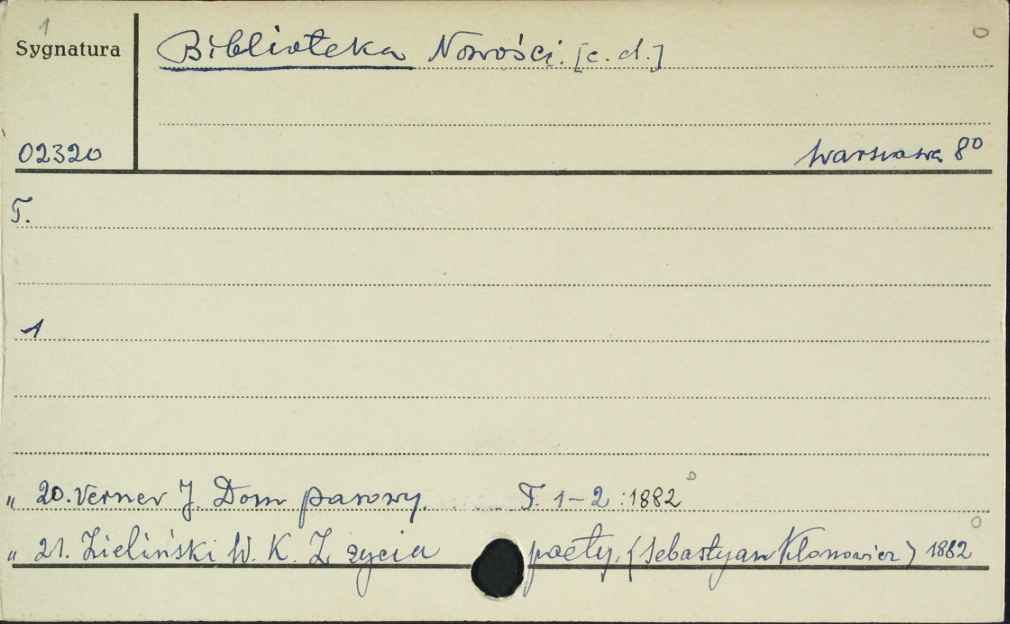 1
Sygnatura
Biblioteka Nowości. [c. d.]
02320
Warszawa 8°
T.
1
„ 20. Verner J. Dom parowy. T. 1-2 : 1882
„ 21. Zieliński W. K. Z życia poety. (Sebastyan Klonowicz) 1882